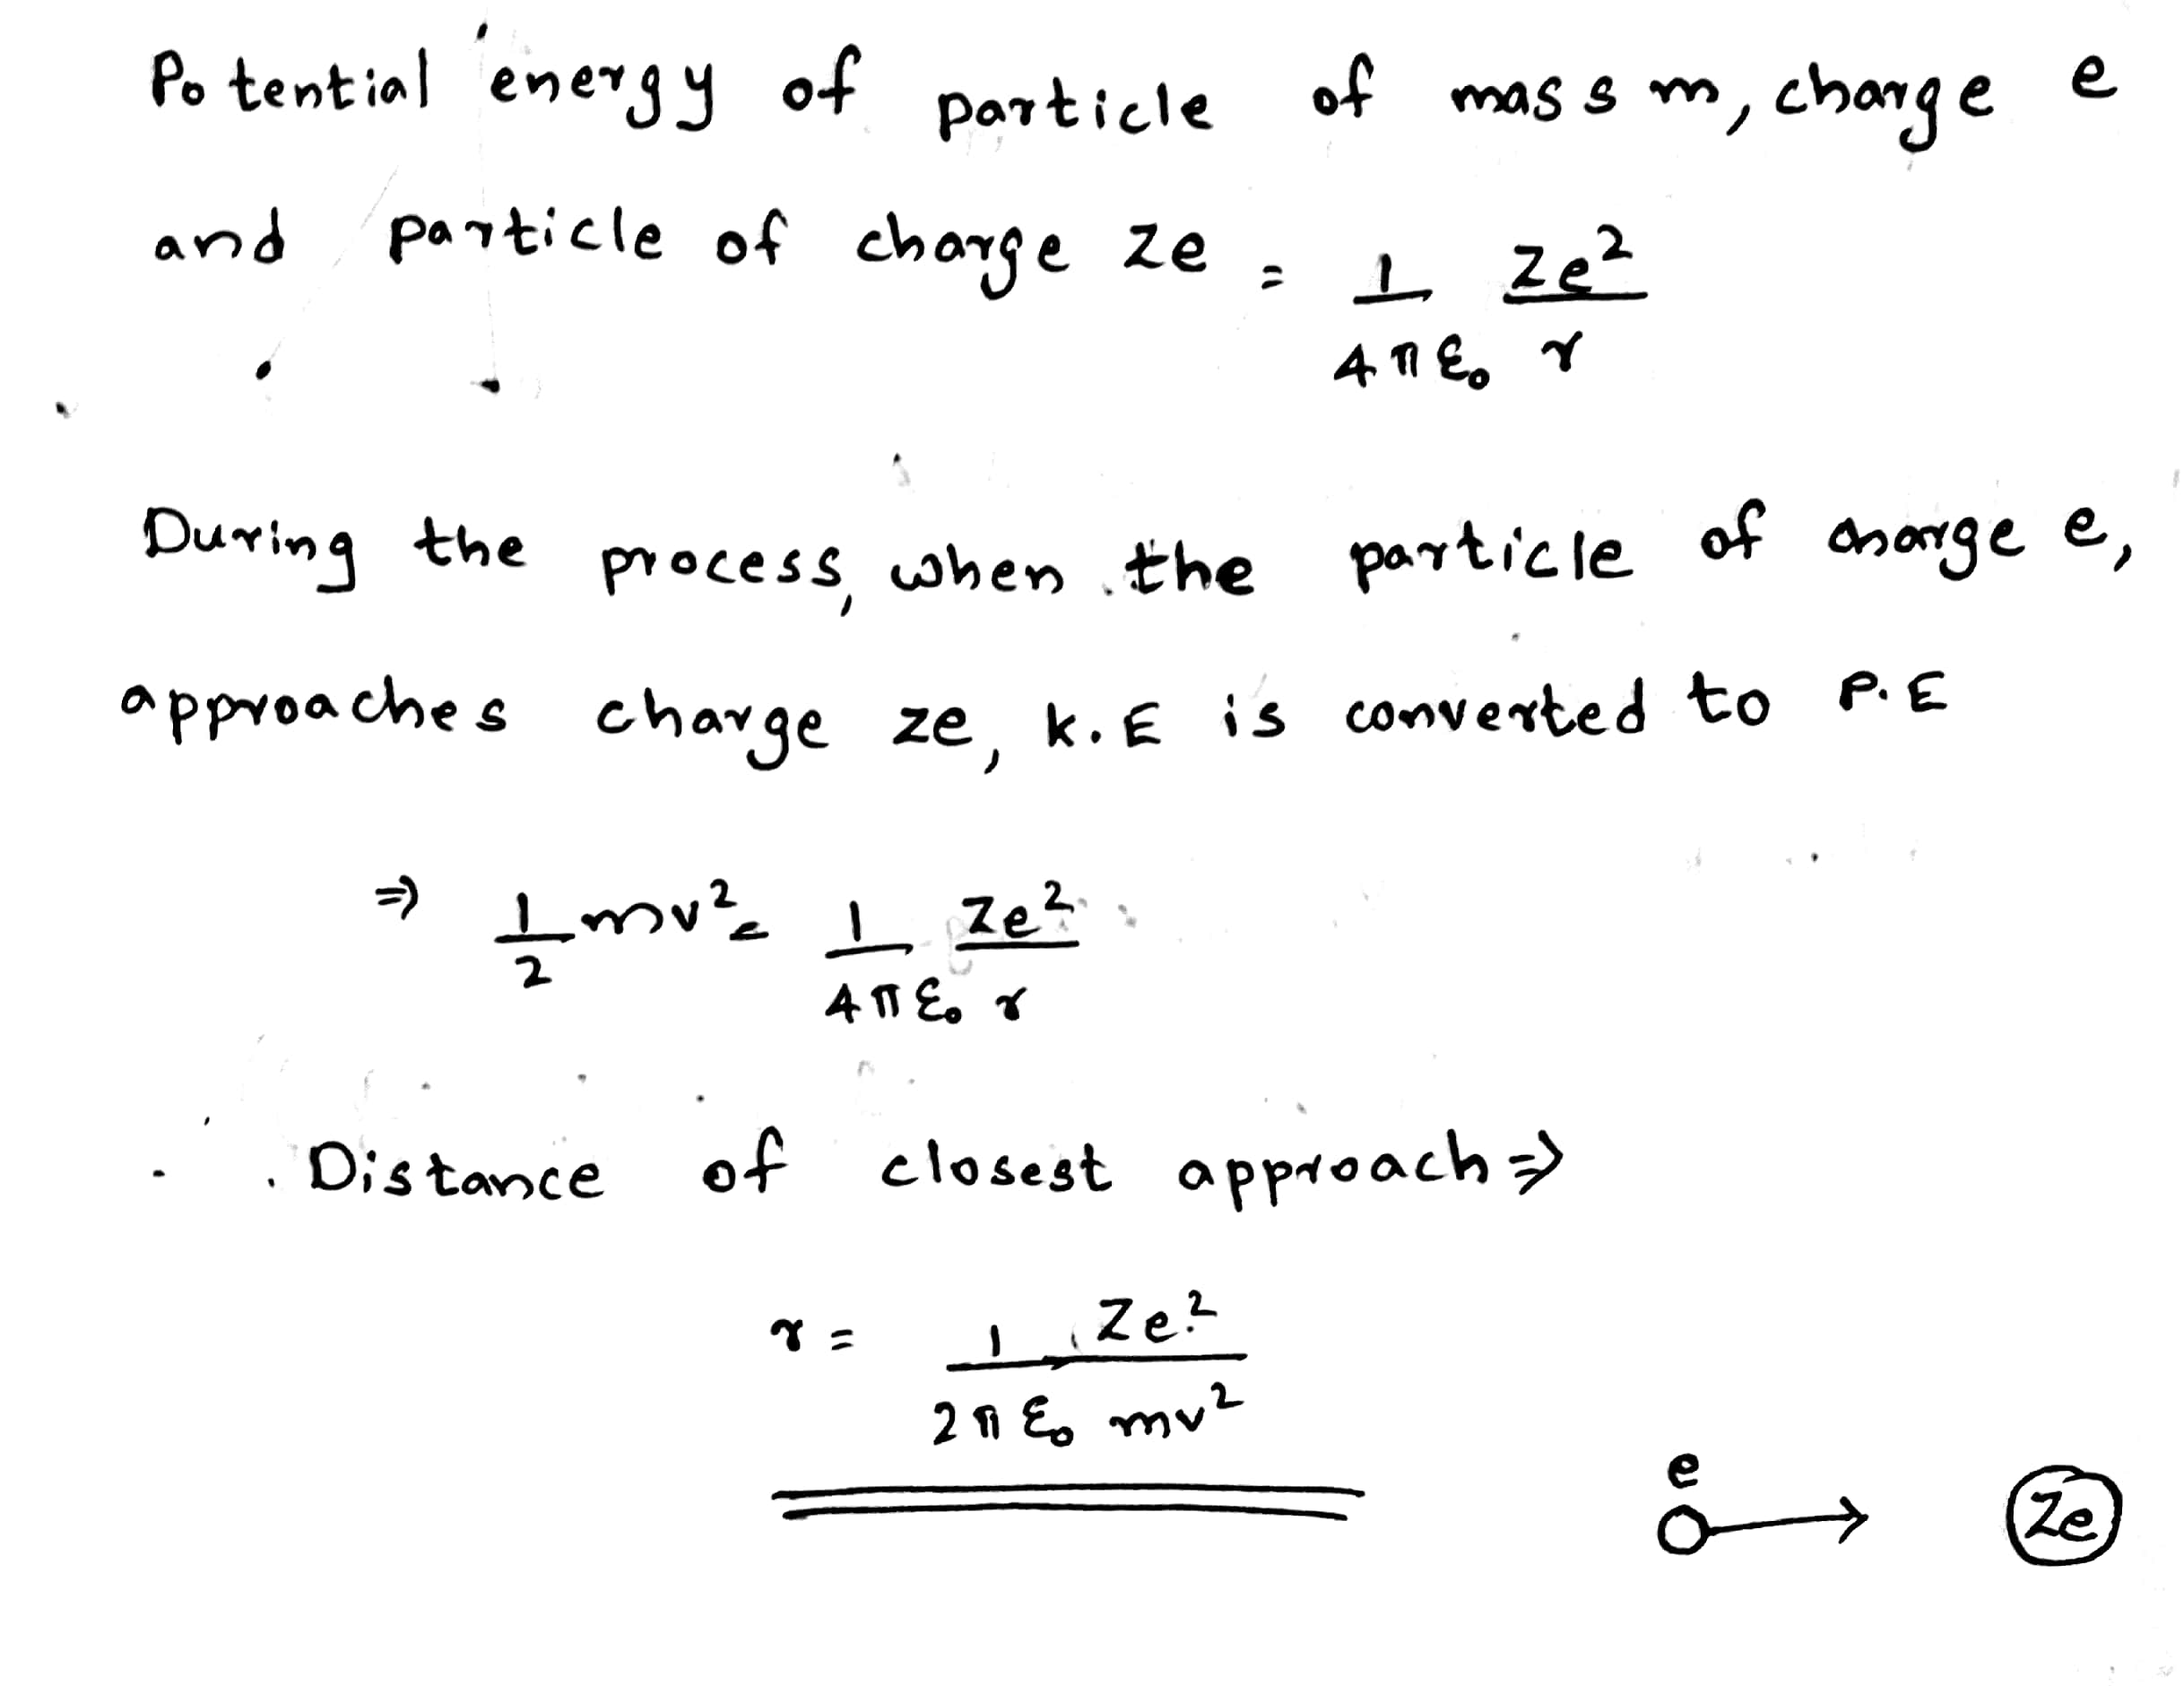 Potential energy of particle of mass m, charge e
and particle of charge ze = 1/4πε₀ Ze²/r
During the process, when the particle of charge e,
approaches charge ze, K.E is converted to P.E
⇒ 1/2 mv² = 1/4πε₀ Ze²/r
∴ Distance of closest approach ⇒
r = 1/2πε₀ Ze²/mv²
e
Ze